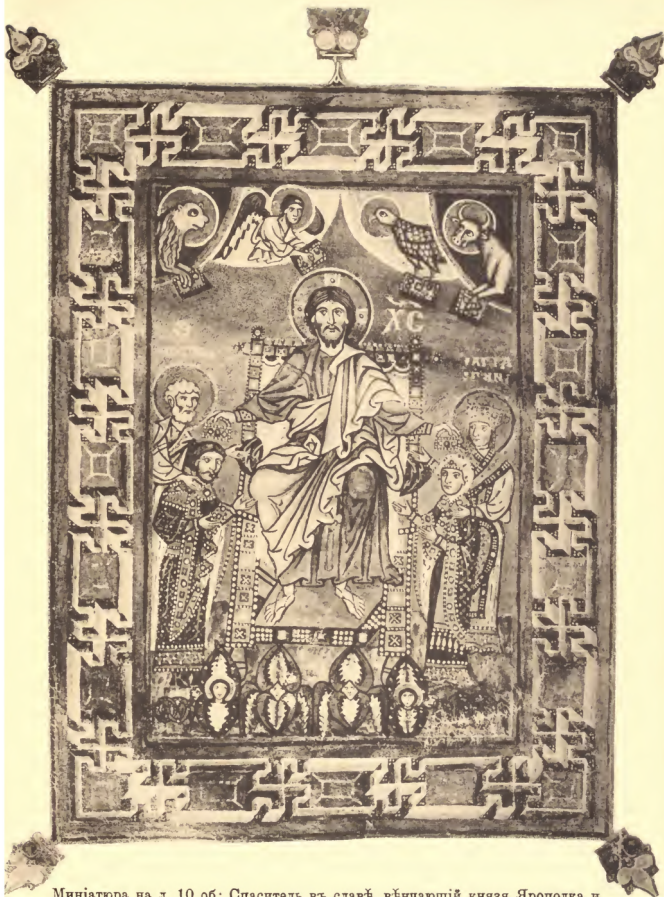 Х҃С
Миніатюра на л. 10 об: Спаситель въ славѣ, вѣнчающій князя Ярополка и